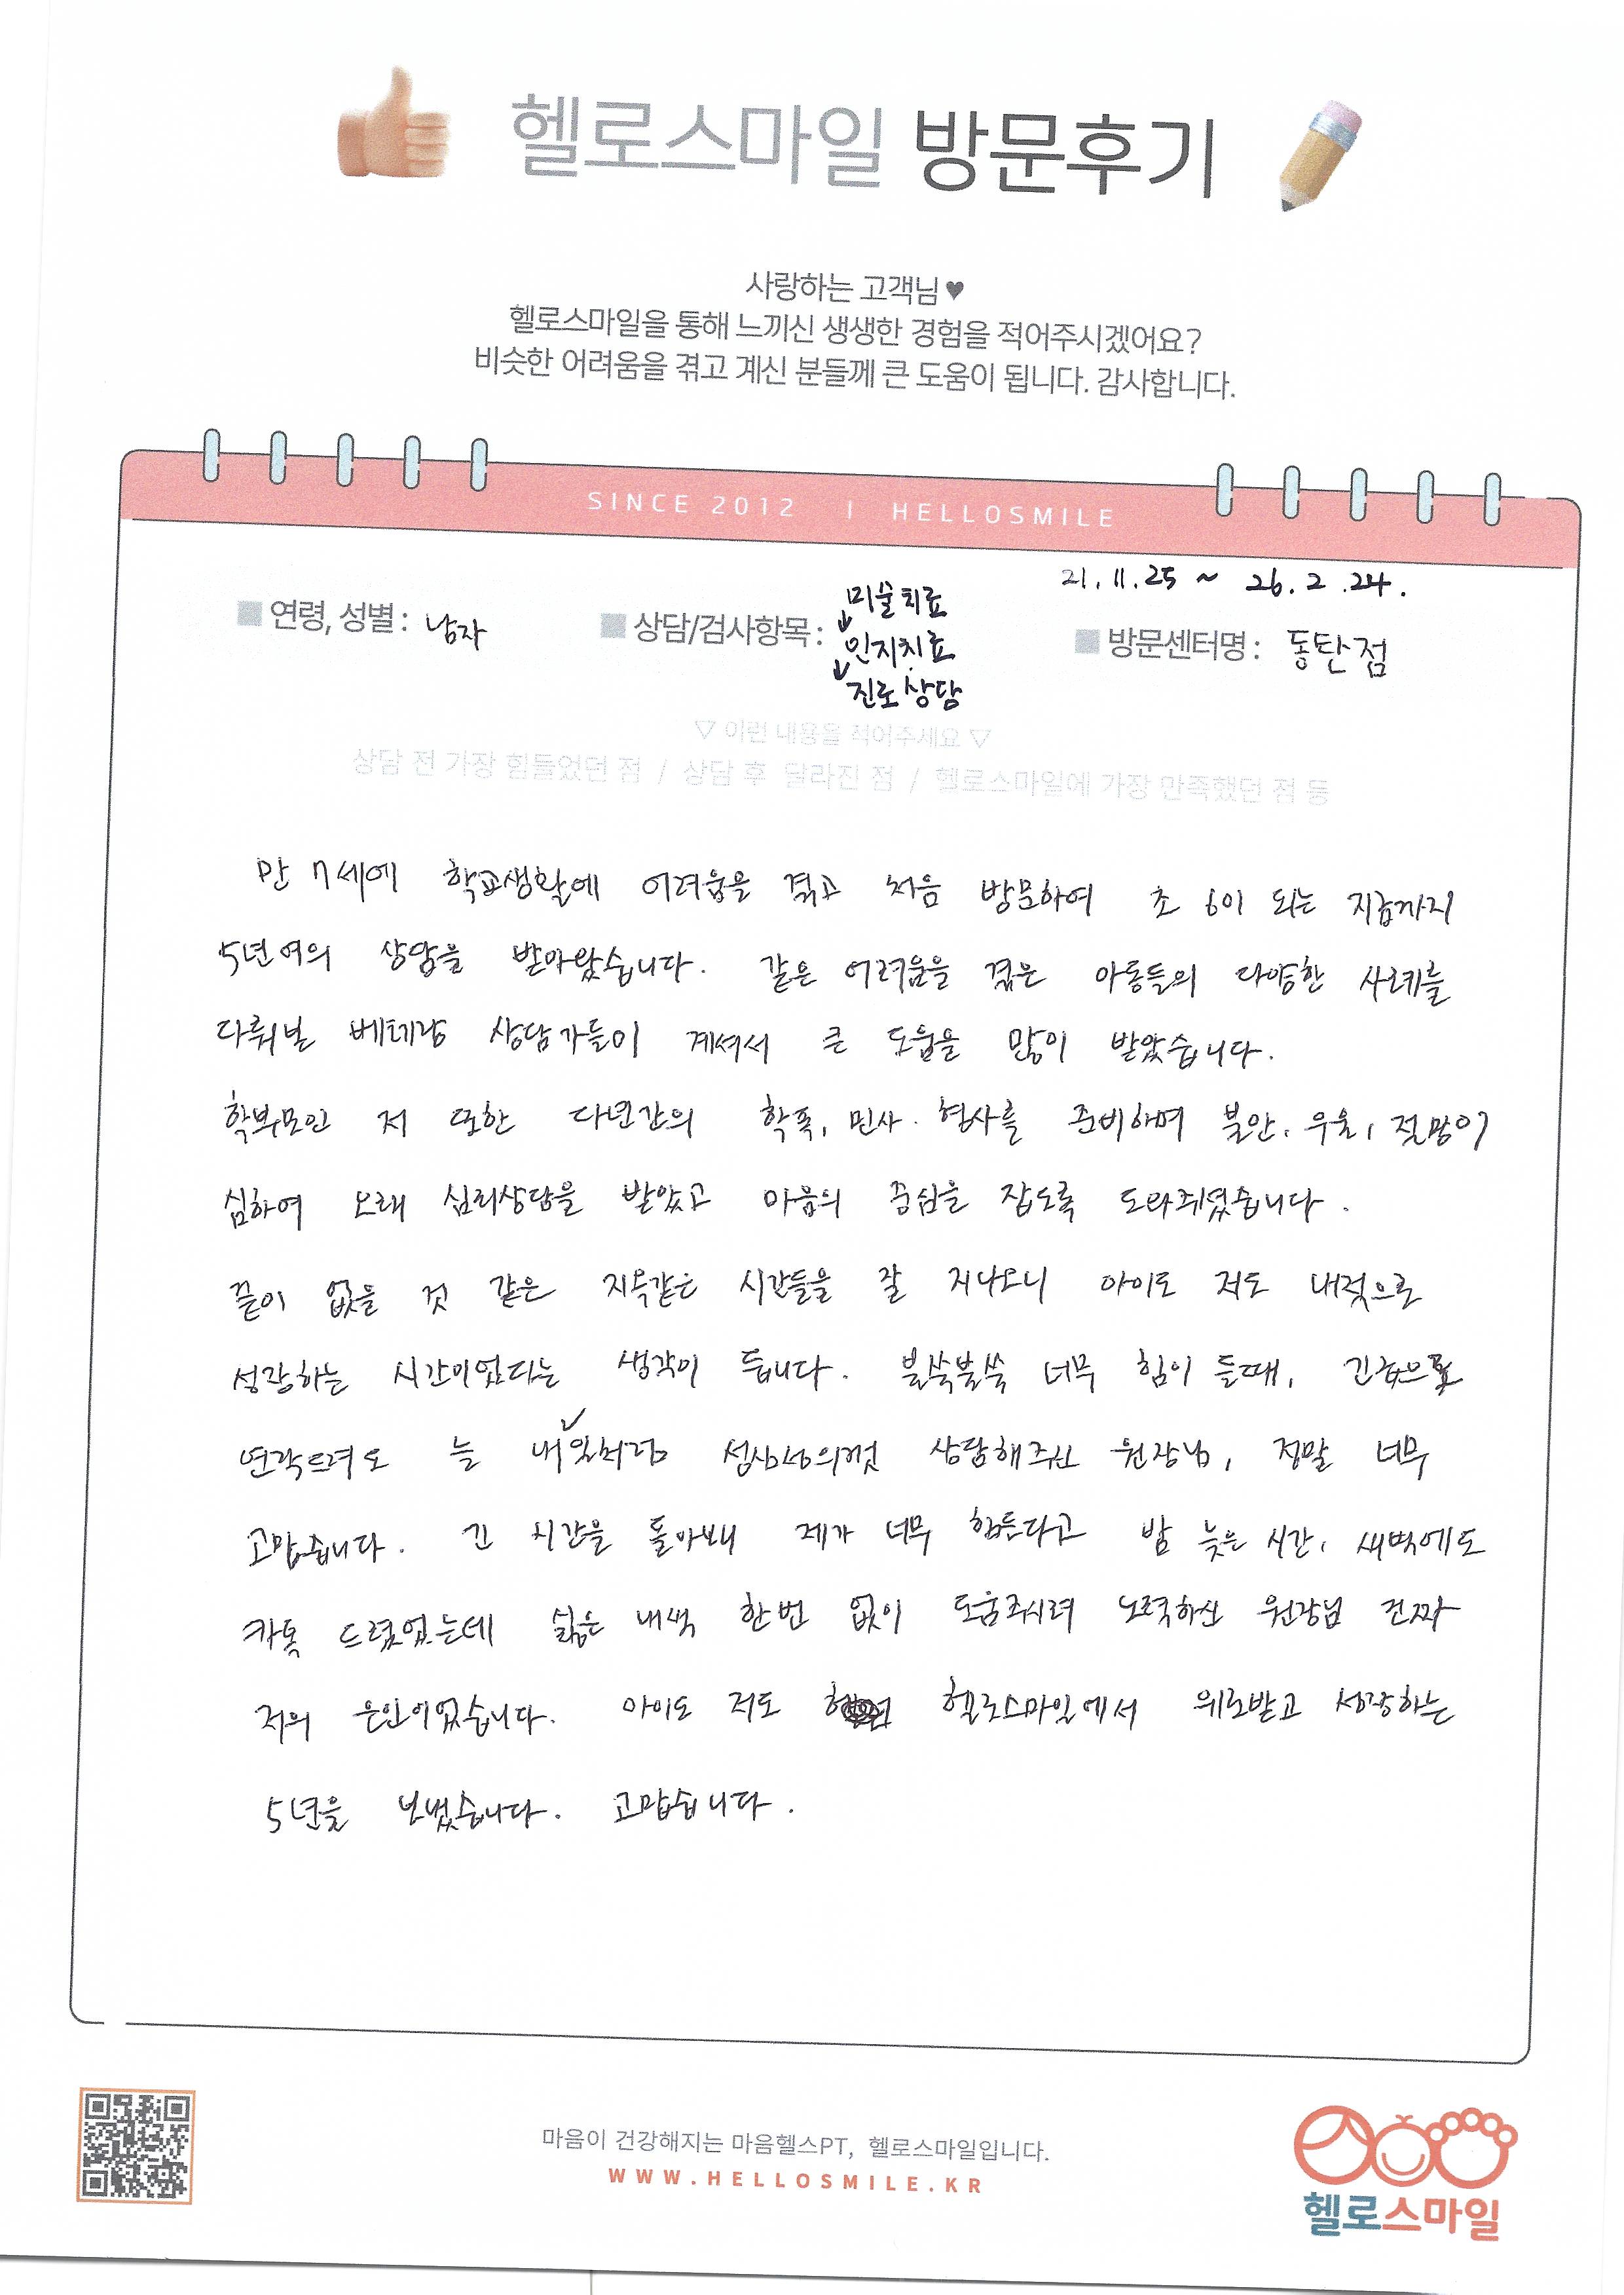 헬로스마일 방문후기
사랑하는 고객님♥
헬로스마일을 통해 느끼신 생생한 경험을 적어주시겠어요?
비슷한 어려움을 겪고 계신 분들께 큰 도움이 됩니다. 감사합니다.
SINCE 2012 | HELLOSMILE
21.11.25 ~ 26.2.24.
연령, 성별 : 남자
상담/검사항목 : 미술치료
↓인지치료
↓진로상담
방문센터명 : 동탄점
▽ 이런 내용을 적어주세요 ▽
상담 전 가장 힘들었던 점 / 상담 후 달라진 점 / 헬로스마일에 가장 만족했던 점 등
만 7세에 학교생활에 어려움을 겪고 처음 방문하여 초 6이 되는 지금까지
5년여의 상담을 받아왔습니다. 같은 어려움을 겪은 아동들의 다양한 사례를
다뤄본 베테랑 상담가들이 계셔서 큰 도움을 많이 받았습니다.
학부모인 저 또한 다년간의 학폭, 민사. 형사를 준비하며 불안, 우울, 절망이
심하여 오래 심리상담을 받았고 마음의 중심을 잡도록 도와주셨습니다.
끝이 없을 것 같은 지옥같은 시간들을 잘 지나오니 아이도 저도 내적으로
성장하는 시간이었다는 생각이 듭니다. 불쑥불쑥 너무 힘이 들때, 긴급으로
연락드려도 늘 내일처럼 성심성의껏 상담해주신 원장님, 정말 너무
고맙습니다. 긴 시간을 돌아보니 제가 너무 힘든다고 밤 늦은 시간, 새벽에도
카톡 드렸었는데 싫은 내색 한번 없이 도움주시려 노력하신 원장님 진짜
저의 은인이었습니다. 아이도 저도 헬로스마일에서 위로받고 성장하는
5년을 보냈습니다. 고맙습니다.
마음이 건강해지는 마음헬스PT, 헬로스마일입니다.
WWW.HELLOSMILE.KR
헬로스마일